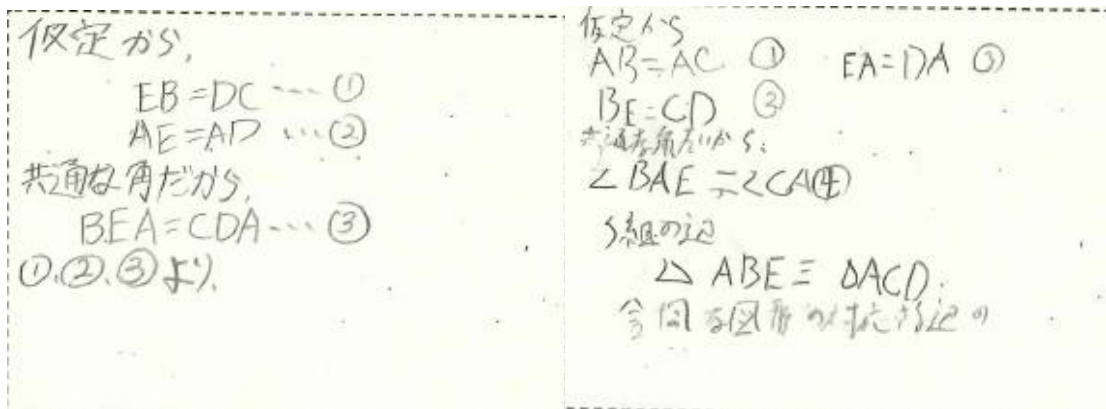 仮定から,
EB=DC…①
AE=AD…②
共通な角だから,
BEA=CDA…③
①,②,③より,
仮定から
AB=AC ① EA=DA ③
BE=CD ②
共通な角だから,
∠BAE=∠CA④
3組の辺
△ABE≡△ACD.
合同な図形の対応する辺の